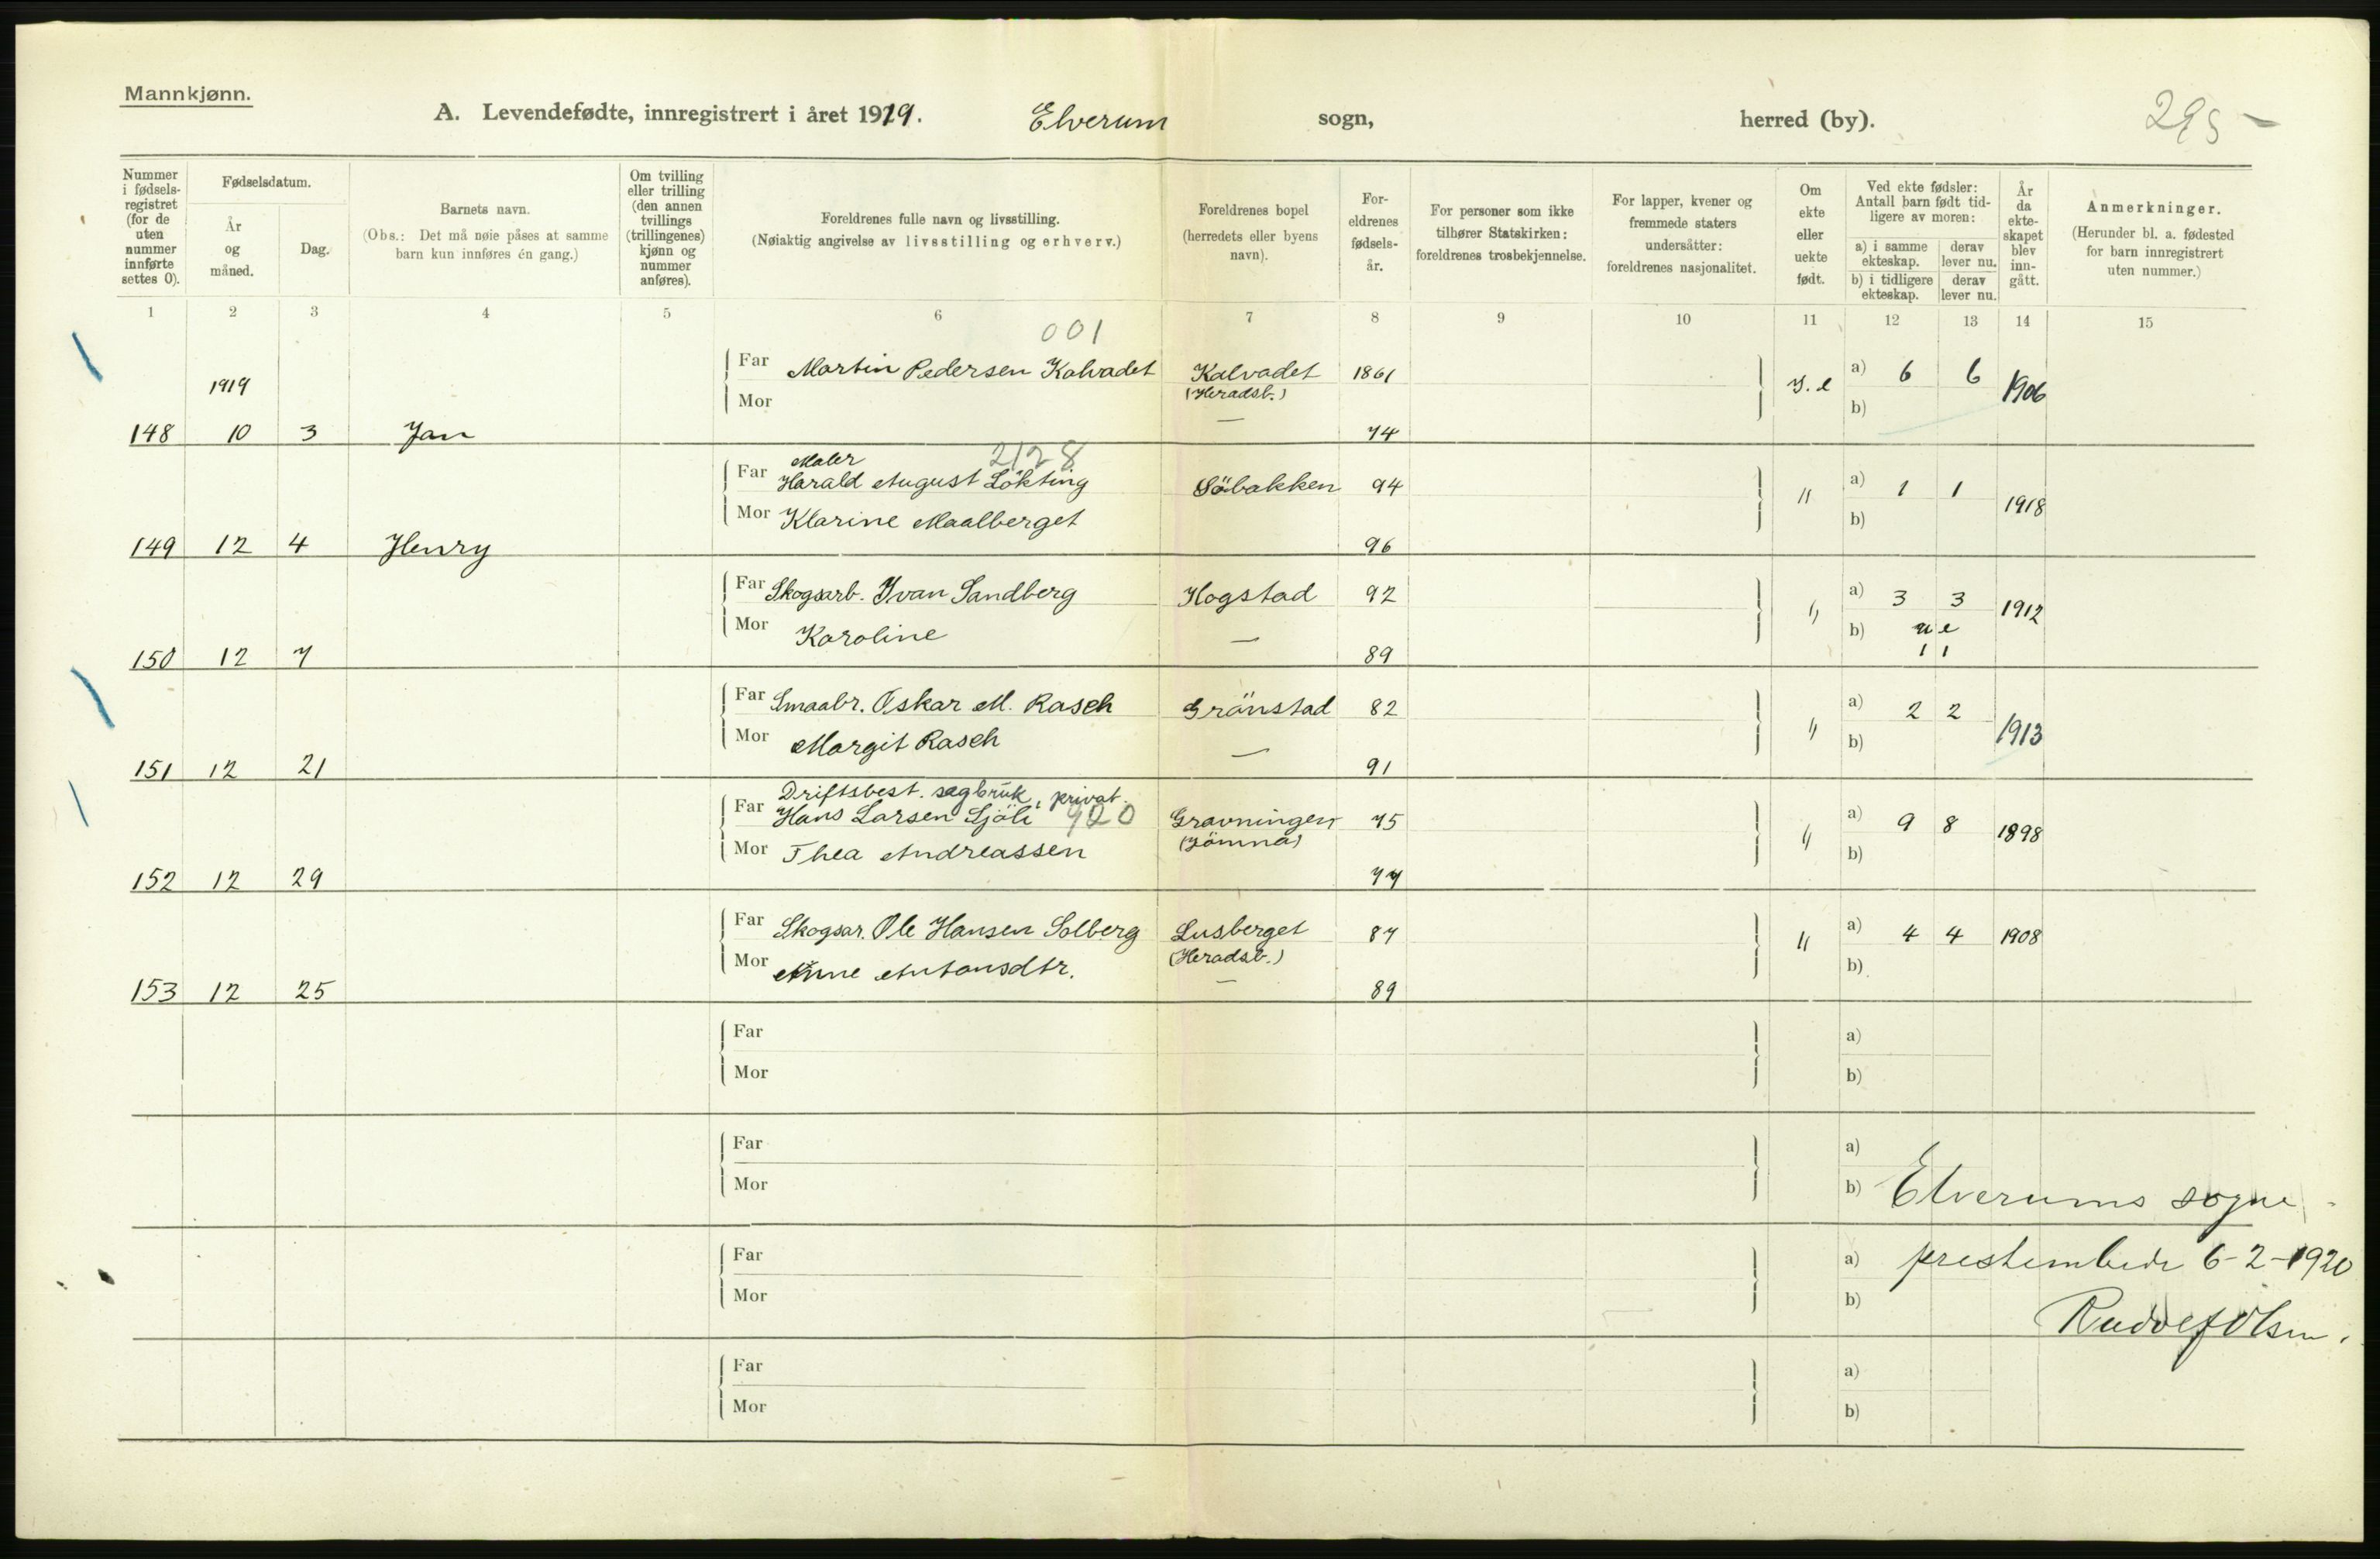 Mannkjønn.
A. Levendefødte, innregistrert i året 1919. Elverum sogn, herred (by). 295
Nummer i fødselsregistret (for de uten nummer innførte settes 0).
Fødselsdatum.
År og måned.
Dag.
Barnets navn.
(Obs.: Det må nøie påses at samme barn kun innføres én gang.)
Om tvilling eller trilling (den annen tvillings (trillingenes) kjønn og nummer anføres).
Foreldrenes fulle navn og livsstilling.
(Nøiaktig angivelse av livsstilling og erhverv.)
Foreldrenes bopel (herredets eller byens navn).
Foreldrenes fødselsår.
For personer som ikke tilhører Statskirken: foreldrenes trosbekjennelse.
For lapper, kvener og fremmede staters undersåtter: foreldrenes nasjonalitet.
Om ekte eller uekte født.
Ved ekte fødsler: Antall barn født tidligere av moren:
a) i samme ekteskap. derav lever nu.
b) i tidligere ekteskap. derav lever nu.
År da ekteskapet blev inngått.
Anmerkninger.
(Herunder bl. a. fødested for barn innregistrert uten nummer.)
1 2 3 4 5 6 7 8 9 10 11 12 13 14 15
001
Far Martin Pedersen Kalvadet Kalvadet 1861 a) 6 6 1906
1919
Mor (Heradsb.) — b)
148 10 3 Jan 74
Maler 2128
Far Harald August Lökting Söbakken 94 " a) 1 1 1918
Mor Klarine Maalberget b)
149 12 4 Henry 96
Far Skogsarb. Ivan Sandberg Hogstad 92 " a) 3 3 1912
Mor Karoline — b) u e
1 1
150 12 7 89
Far Smaabr. Oskar M. Rasch Grönstad 82 " a) 2 2 1913
Mor Margit Rasch — b)
151 12 21 91
Driftsbest. sagbruk, privat.
Far Hans Larsen Sjöli 920 Gravningen 75 " a) 9 8 1898
(Jömna)
Mor Thea Andreassen b)
152 12 29 77
Far Skogsar. Ole Hansen Solberg Lusberget 87 " a) 4 4 1908
Mor Anne Antonsdtr. (Heradsb.) — b)
153 12 25 89
Far a)
Mor b)
Far a)
Mor b) Elverums sogne
Far a) prestembede 6-2-1920
Mor b)
Rudolf Olsen.
Far a)
Mor b)